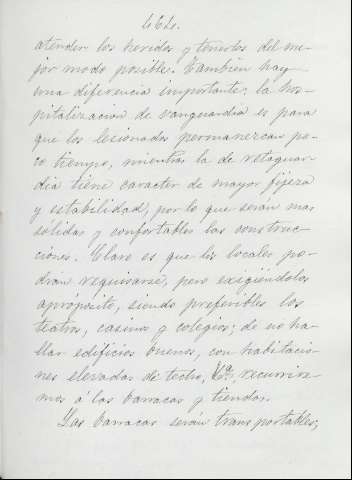 464.
atender los heridos y tenerlos del me-
jor modo posible. También hay
una diferencia importante: la hos-
pitalización de vanguardia es para
que los lesionados permanezcan po-
co tiempo, mientras la de retaguar-
dia tiene caracter de mayor fijeza
y estabilidad, por lo que serán mas
sólidas y confortables las construc-
ciones. Claro es que los locales po-
dran requisarse, pero exigiéndolos
apropósito, siendo preferibles los
teatros, casinos y colegios; de no ha-
llar edificios buenos, con habitacio-
nes elevadas de techo, &ª, recurrire-
mos á las barracas y tiendas.
Las barracas serán transportables,